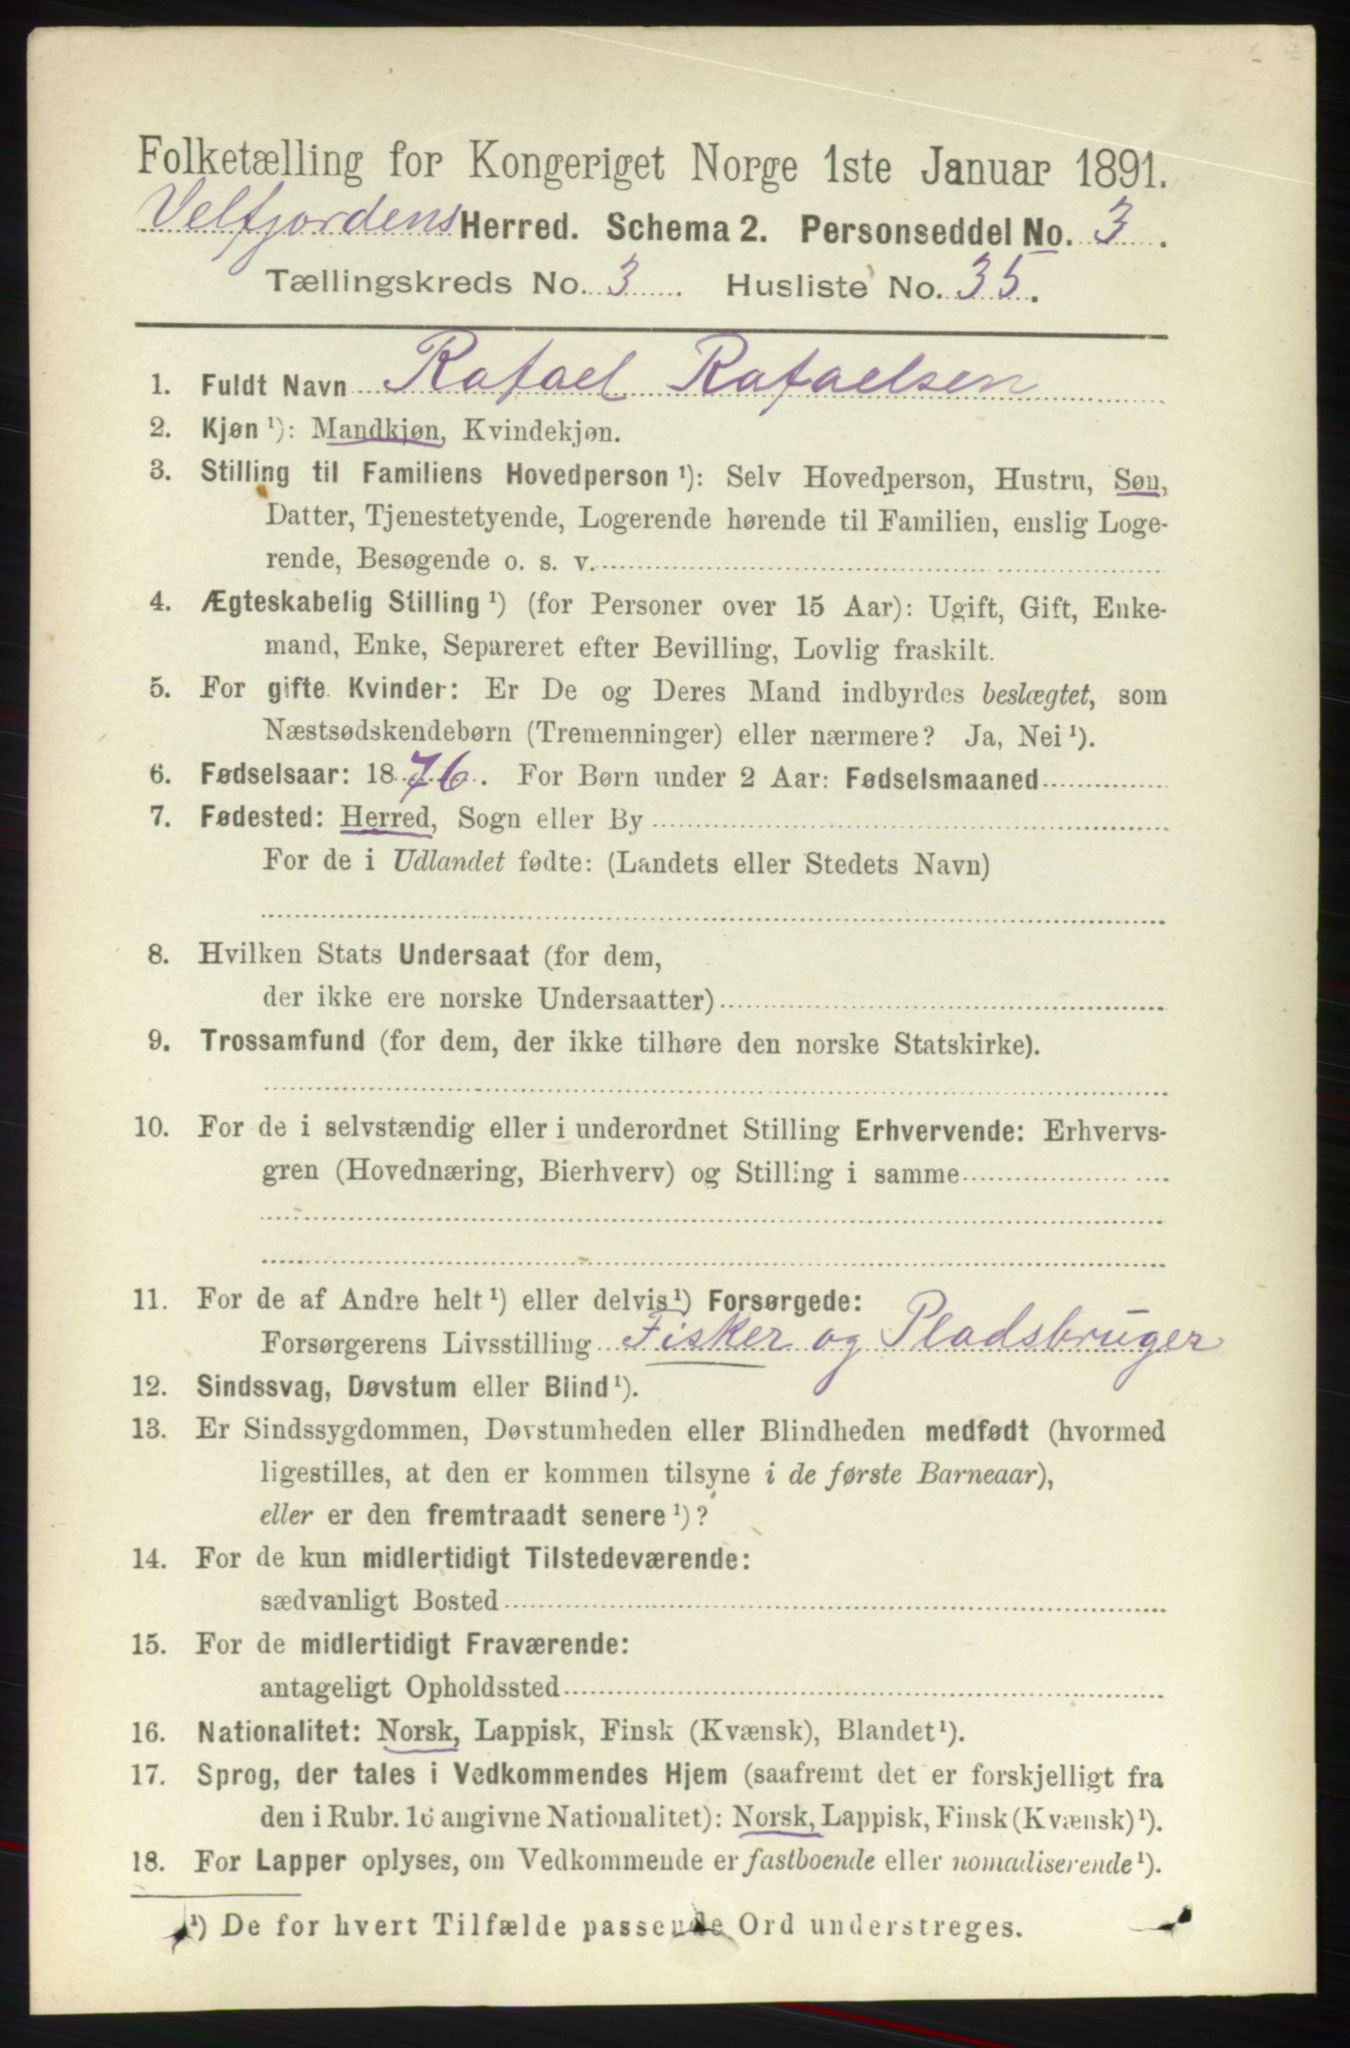 Folketælling for Kongeriget Norge 1ste Januar 1891.
Velfjordens Herred. Schema 2. Personseddel No. 3.
Tællingskreds No. 3. Husliste No. 35.
1. Fuldt Navn Rafael Rafaelsen
2. Kjøn ¹): Mandkjøn, Kvindekjøn.
3. Stilling til Familiens Hovedperson ¹): Selv Hovedperson, Hustru, Søn,
Datter, Tjenestetyende, Logerende hørende til Familien, enslig Loge-
rende, Besøgende o. s. v.
4. Ægteskabelig Stilling ¹) (for Personer over 15 Aar): Ugift, Gift, Enke-
mand, Enke, Separeret efter Bevilling, Lovlig fraskilt.
5. For gifte Kvinder: Er De og Deres Mand indbyrdes beslægtet, som
Næstsødskendebørn (Tremenninger) eller nærmere? Ja, Nei ¹).
6. Fødselsaar: 1876. For Børn under 2 Aar: Fødselsmaaned
7. Fødested: Herred, Sogn eller By
For de i Udlandet fødte: (Landets eller Stedets Navn)
8. Hvilken Stats Undersaat (for dem,
der ikke ere norske Undersaatter)
9. Trossamfund (for dem, der ikke tilhøre den norske Statskirke).
10. For de i selvstændig eller i underordnet Stilling Erhvervende: Erhvervs-
gren (Hovednæring, Bierhverv) og Stilling i samme
11. For de af Andre helt ¹) eller delvis ¹) Forsørgede:
Forsørgerens Livsstilling Fisker og Pladsbruger
12. Sindssvag, Døvstum eller Blind ¹).
13. Er Sindssygdommen, Døvstumheden eller Blindheden medfødt (hvormed
ligestilles, at den er kommen tilsyne i de første Barneaar),
eller er den fremtraadt senere ¹)?
14. For de kun midlertidigt Tilstedeværende:
sædvanligt Bosted
15. For de midlertidigt Fraværende:
antageligt Opholdssted
16. Nationalitet: Norsk, Lappisk, Finsk (Kvænsk), Blandet ¹).
17. Sprog, der tales i Vedkommendes Hjem (saafremt det er forskjelligt fra
den i Rubr. 16 angivne Nationalitet): Norsk, Lappisk, Finsk (Kvænsk) ¹).
18. For Lapper oplyses, om Vedkommende er fastboende eller nomadiserende ¹).
¹) De for hvert Tilfælde passende Ord understreges.